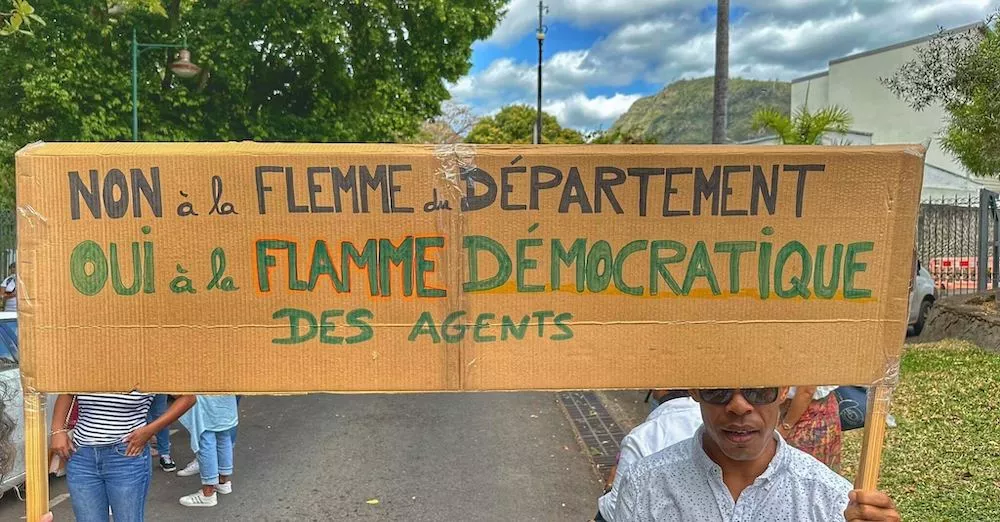 NON à la FLEMME du DÉPARTEMENT
OUI à la FLAMME DÉMOCRATIQUE
DES AGENTS